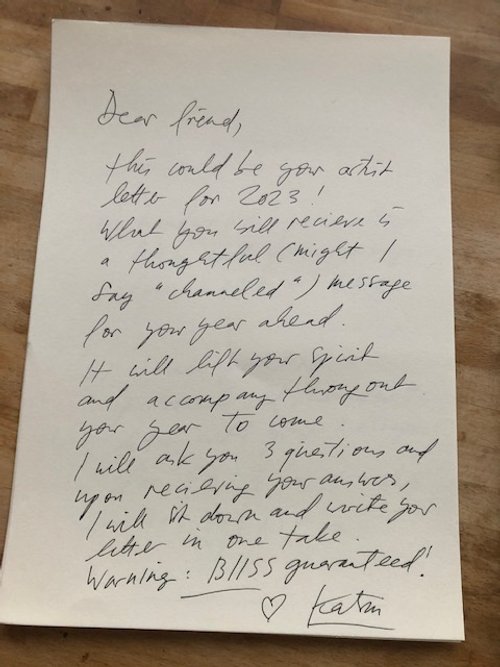 Dear friend,
this could be your artist
letter for 2023!
What you will recieve is
a thoughtful (might I
say "channeled") message
for your year ahead.
It will lift your spirit
and accompany throug out
your year to come.
I will ask you 3 questions and
upon recieving your answers,
I will sit down and write your
letter in one take.
Warning: BlISS guaranteed!
♡ Katrin